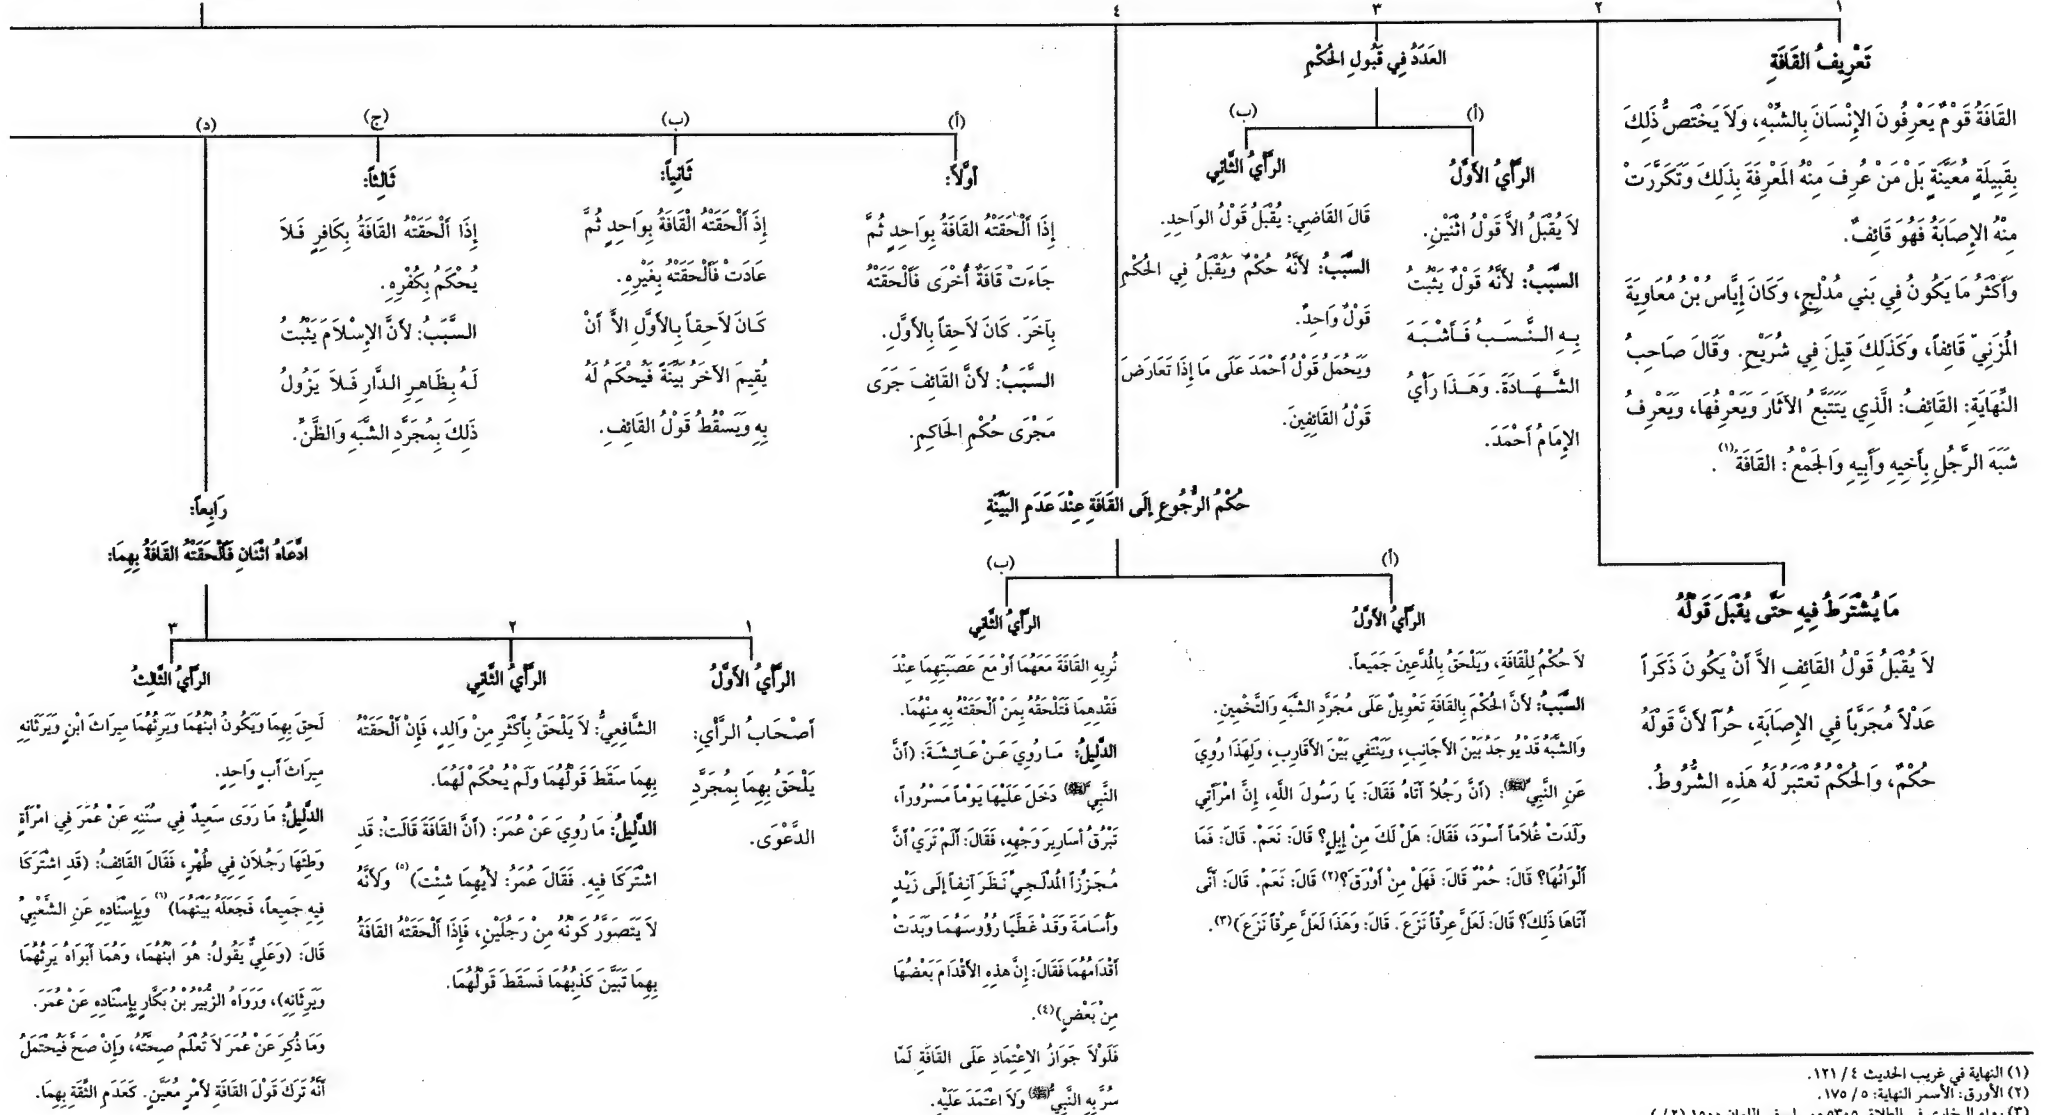 ١
تَعْرِيفُ القَافَةِ
القَافَةُ قَوْمٌ يَعْرِفُونَ الإِنْسَانَ بِالشَّبْهِ، وَلاَ يَخْتَصُّ ذَلِكَ
بِقَبِيلَةٍ مُعَيَّنَةٍ بَلْ مَنْ عُرِفَ مِنْهُ المَعْرِفَةَ بِذَلِكَ وَتَكَرَّرَتْ
مِنْهُ الإِصَابَةُ فَهُوَ قَائِفٌ.
وَأَكْثَرُ مَا يَكُونُ فِي بَنِي مُدْلِجٍ، وَكَانَ إِيَّاسُ بْنُ مُعَاوِيَةَ
المُزَنِيّ قَائِفاً، وَكَذَلِكَ قِيلَ فِي شُرَيْحٍ. وَقَالَ صَاحِبُ
النِّهَايَةِ: القَائِفُ: الَّذِي يَتَتَبَّعُ الآثَارَ وَيَعْرِفُهَا، وَيَعْرِفُ
شَبَهَ الرَّجُلِ بِأَخِيهِ وَأَبِيهِ وَالجَمْعُ: القَافَةُ(١).
٢
مَا يُشْتَرَطُ فِيهِ حَتَّى يُقْبَلَ قَوْلُهُ
لاَ يُقْبَلُ قَوْلُ القَائِفِ الاَّ أَنْ يَكُونَ ذَكَراً
عَدْلاً مُجَرَّباً فِي الإِصَابَةِ، حُرّاً لأَنَّ قَوْلَهُ
حُكْمٌ، وَالحُكْمُ تُعْتَبَرُ لَهُ هَذِهِ الشُّرُوطُ.
٣
العَدَدُ فِي قَبُولِ الحُكْمِ
(أ)
الرَّأْيُ الأَوَّلُ
لاَ يُقْبَلُ الاَّ قَوْلُ اثْنَيْنِ.
السَّبَبُ: لأَنَّهُ قَوْلٌ يَثْبُتُ
بِهِ النَّسَبُ فَأَشْبَهَ
الشَّهَادَةَ. وَهَذَا رَأْيُ
الإِمَامُ أَحْمَدَ.
(ب)
الرَّأْيُ الثَّانِي
قَالَ القَاضِي: يُقْبَلُ قَوْلُ الوَاحِدِ.
السَّبَبُ: لأَنَّهُ حُكْمٌ وَيُقْبَلُ فِي الحُكْمِ
قَوْلٌ وَاحِدٌ.
وَيَحْمَلُ قَوْلُ أَحْمَدَ عَلَى مَا إِذَا تَعَارَضَ
قَوْلُ القَائِفِينَ.
٤
حُكْمُ الرُّجُوعِ إِلَى القَافَةِ عِنْدَ عَدَمِ البَيِّنَةِ
(أ)
الرَّأْيُ الأَوَّلُ
لاَ حُكْمُ لِلْقَافَةِ، وَيَلْحَقُ بِالمُدَّعِينَ جَمِيعاً.
السَّبَبُ: لأَنَّ الحُكْمَ بِالقَافَةِ تَعْوِيلٌ عَلَى مُجَرَّدِ الشَّبَهِ وَالتَّخْمِينِ.
وَالشَّبَهُ قَدْ يُوجَدُ بَيْنَ الأَجَانِبِ، وَيَنْتَفِي بَيْنَ الأَقَارِبِ، وَلِهَذَا رُوِيَ
عَنِ النَّبِيِّ ﷺ: (أَنَّ رَجُلاً أَتَاهُ فَقَالَ: يَا رَسُولَ اللَّهِ، إِنَّ امْرَأَتِي
وَلَدَتْ غُلاَماً أَسْوَدَ، فَقَالَ: هَلْ لَكَ مِنْ إِبِلٍ؟ قَالَ: نَعَمْ. قَالَ: فَمَا
أَلْوَانُهَا؟ قَالَ: حُمْرٌ قَالَ: فَهَلْ مِنْ أَوْرَقَ؟(٢) قَالَ: نَعَمْ. قَالَ: أَنَّى
أَتَاهَا ذَلِكَ؟ قَالَ: لَعَلَّ عِرْقاً نَزَعَ. قَالَ: وَهَذَا لَعَلَّ عِرْقاً نَزَعَ)(٣).
(ب)
الرَّأْيُ الثَّانِي
نُرِيهِ القَافَةَ مَعَهُمَا أَوْ مَعَ عَصَبَتِهِمَا عِنْدَ
فَقْدِهِمَا فَتَلْحَقُهُ بِمَنْ أَلْحَقَتْهُ بِهِ مِنْهُمَا.
الدَّلِيلُ: مَا رُوِيَ عَنْ عَائِشَةَ: (أَنَّ
النَّبِيَّ ﷺ دَخَلَ عَلَيْهَا يَوْماً مَسْرُوراً،
تَبْرُقُ أَسَارِيرَ وَجْهِهِ، فَقَالَ: أَلَمْ تَرَيْ أَنَّ
مُجَزِّزاً المُدْلَجِيَّ نَظَرَ آنِفاً إِلَى زَيْدٍ
وَأُسَامَةَ وَقَدْ غَطَّيَا رُؤُوسَهُمَا وَبَدَتْ
أَقْدَامُهُمَا فَقَالَ: إِنَّ هذِهِ الأَقْدَامَ بَعْضُهَا
مِنْ بَعْضٍ)(٤).
فَلَوْلاَ جَوَازُ الاِعْتِمَادِ عَلَى القَافَةِ لَمَا
سُرَّ بِهِ النَّبِيُّ ﷺ وَلاَ اعْتَمَدَ عَلَيْهِ.
(أ)
أَوَّلاً:
إِذَا أَلْحَقَتْهُ القَافَةُ بِوَاحِدٍ ثُمَّ
جَاءَتْ قَافَةٌ أُخْرَى فَأَلْحَقَتْهُ
بِآخَرَ. كَانَ لاَحِقاً بِالأَوَّلِ.
السَّبَبُ: لأَنَّ القَائِفَ جَرَى
مَجْرَى حُكْمِ الحَاكِمِ.
(ب)
ثَانِياً:
إِذَ أَلْحَقَتْهُ الْقَافَةُ بِوَاحِدٍ ثُمَّ
عَادَتْ فَأَلْحَقَتْهُ بِغَيْرِهِ.
كَانَ لاَحِقاً بِالأَوَّلِ الاَّ أَنْ
يُقِيمَ الآخَرُ بَيِّنَةً فَيُحْكَمُ لَهُ
بِهِ وَيَسْقُطُ قَوْلُ القَائِفِ.
(ج)
ثَالِثاً:
إِذَا أَلْحَقَتْهُ القَافَةُ بِكَافِرٍ فَلاَ
يُحْكَمُ بِكُفْرِهِ.
السَّبَبُ: لأَنَّ الإِسْلاَمَ يَثْبُتُ
لَهُ بِظَاهِرِ الدَّارِ فَلاَ يَزُولُ
ذَلِكَ بِمُجَرَّدِ الشَّبَهِ وَالظَّنِّ.
(د)
رَابِعاً:
ادَّعَاهُ اثْنَانِ فَأَلْحَقَتْهُ القَافَةُ بِهِمَا:
١
الرَّأْيُ الأَوَّلُ
أَصْحَابُ الرَّأْيِ:
يَلْحَقُ بِهِمَا بِمُجَرَّدِ
الدَّعْوَى.
٢
الرَّأْيُ الثَّانِي
الشَّافِعِيُّ: لاَ يَلْحَقُ بِأَكْثَرِ مِنْ وَالِدٍ، فَإِنْ أَلْحَقَتْهُ
بِهِمَا سَقَطَ قَوْلُهُمَا وَلَمْ يُحْكَمْ لَهُمَا.
الدَّلِيلُ: مَا رُوِيَ عَنْ عُمَرَ: (أَنَّ القَافَةَ قَالَتْ: قَدِ
اشْتَرَكَا فِيهِ. فَقَالَ عُمَرُ: لأَيِّهِمَا شِئْتَ)(٥) وَلأَنَّهُ
لاَ يَتَصَوَّرُ كَوْنُهُ مِنْ رَجُلَيْنِ، فَإِذَا أَلْحَقَتْهُ القَافَةُ
بِهِمَا تَبَيَّنَ كَذِبُهُمَا فَسَقَطَ قَوْلُهُمَا.
٣
الرَّأْيُ الثَّالِثُ
لَحِقَ بِهِمَا وَيَكُونُ ابْنُهُمَا وَيَرِثُهُمَا مِيرَاثَ ابْنٍ وَيَرَثَانِهِ
مِيرَاثَ أَبٍ وَاحِدٍ.
الدَّلِيلُ: مَا رَوَى سَعِيدٌ فِي سُنَنِهِ عَنْ عُمَرَ فِي امْرَأَةٍ
وَطِئَهَا رَجُلاَنِ فِي طُهْرٍ، فَقَالَ القَائِفُ: (قَدِ اشْتَرَكَا
فِيهِ جَمِيعاً، فَجَعَلَهُ بَيْنَهُمَا)(٦) وَبِإِسْنَادِهِ عَنِ الشَّعْبِيِّ
قَالَ: (وَعَلِيٌّ يَقُولُ: هُوَ ابْنُهُمَا، وَهُمَا أَبَوَاهُ يَرِثُهُمَا
وَيَرِثَانِهِ)، وَرَوَاهُ الزُّبَيْرُ بْنُ بَكَّارٍ بِإِسْنَادِهِ عَنْ عُمَرَ.
وَمَا ذُكِرَ عَنْ عُمَرَ لاَ تُعْلَمُ صِحَّتُهُ، وَإِنْ صَحَّ فَيُحْتَمَلُ
أَنَّهُ تَرَكَ قَوْلَ القَافَةِ لأَمْرٍ مُعَيَّنٍ. كَعَدَمِ الثِّقَةِ بِهِمَا.
(١) النهاية في غريب الحديث ٤ / ١٢١.
(٢) الأورق: الأسمر النهاية: ٥ / ١٧٥.